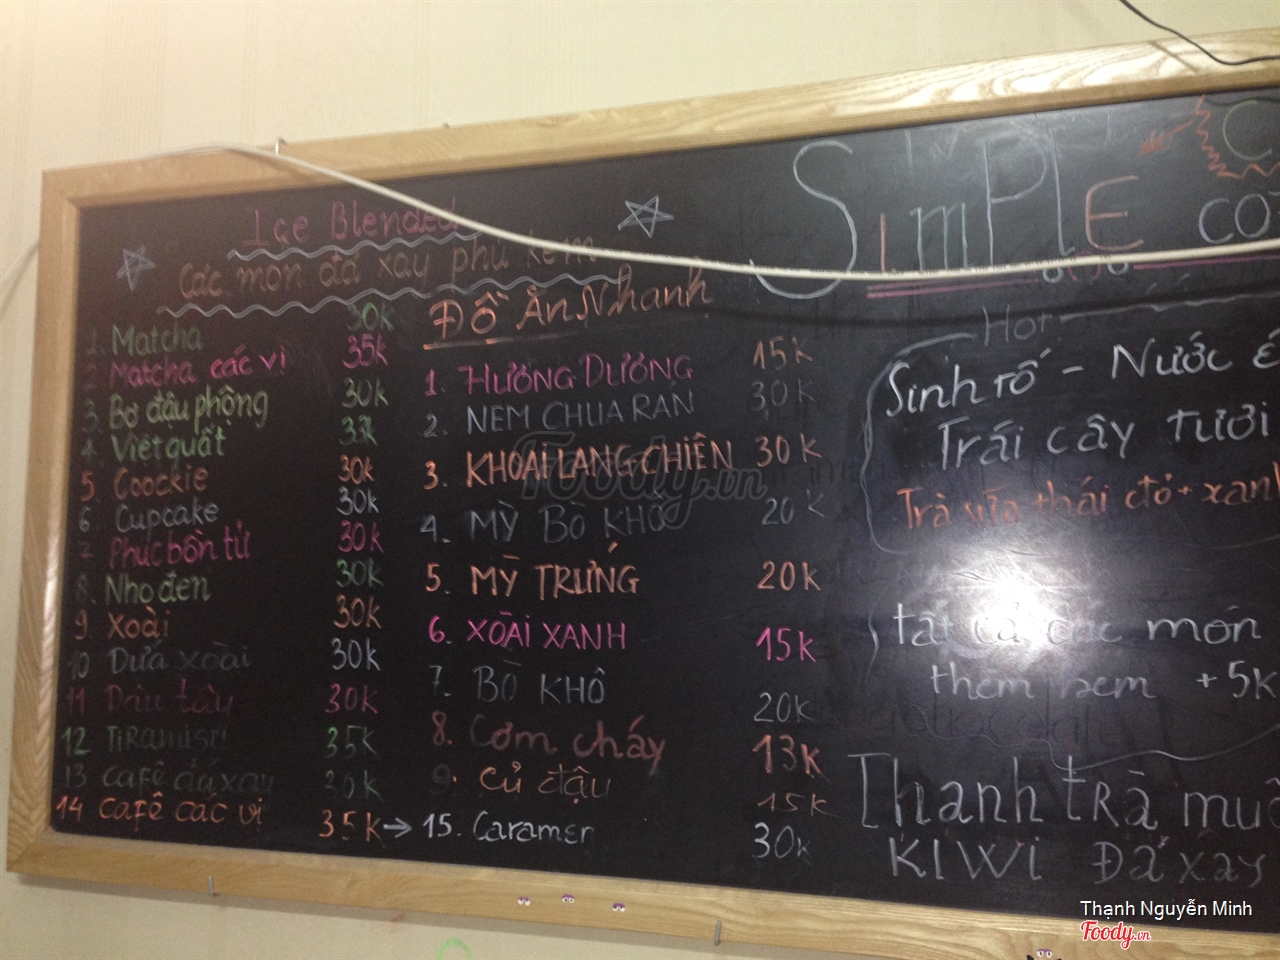 Ice Blended
Các món đá xay phủ kem
1. Matcha 30k
2. Matcha các vị 35k
3. Bơ đậu phộng 30k
4. Việt quất
5. Coockie 30k
6. Cupcake 30k
7. Phúc bồn tử 30k
8. Nho đen 30k
9 Xoài 30k
10 Dưa xoài 30k
11 Dâu tây 30k
12 Tiramisu 35k
13 café đá xay
14 café các vị 35k
15. Caramen 30k
Đồ Ăn Nhanh
1. HƯỚNG DƯƠNG 15k
2. NEM CHUA RÁN 30k
3. KHOAI LANG CHIÊN 30k
4. MỲ BÒ KHÔ 20k
5. MỲ TRỨNG 20k
6. XOÀI XANH 15k
7. BÒ KHÔ 20k
8. Cơm cháy 13k
9. củ đậu 15k
SIMPLE
Hot
Sinh tố - Nước é
Trái cây tươi
Trà sữa thái đỏ + xanh
tất cả các món
thêm kem +5k
Thanh trà
KIWI Đá xay
Foody.vn
Thạnh Nguyễn Minh
Foody.vn